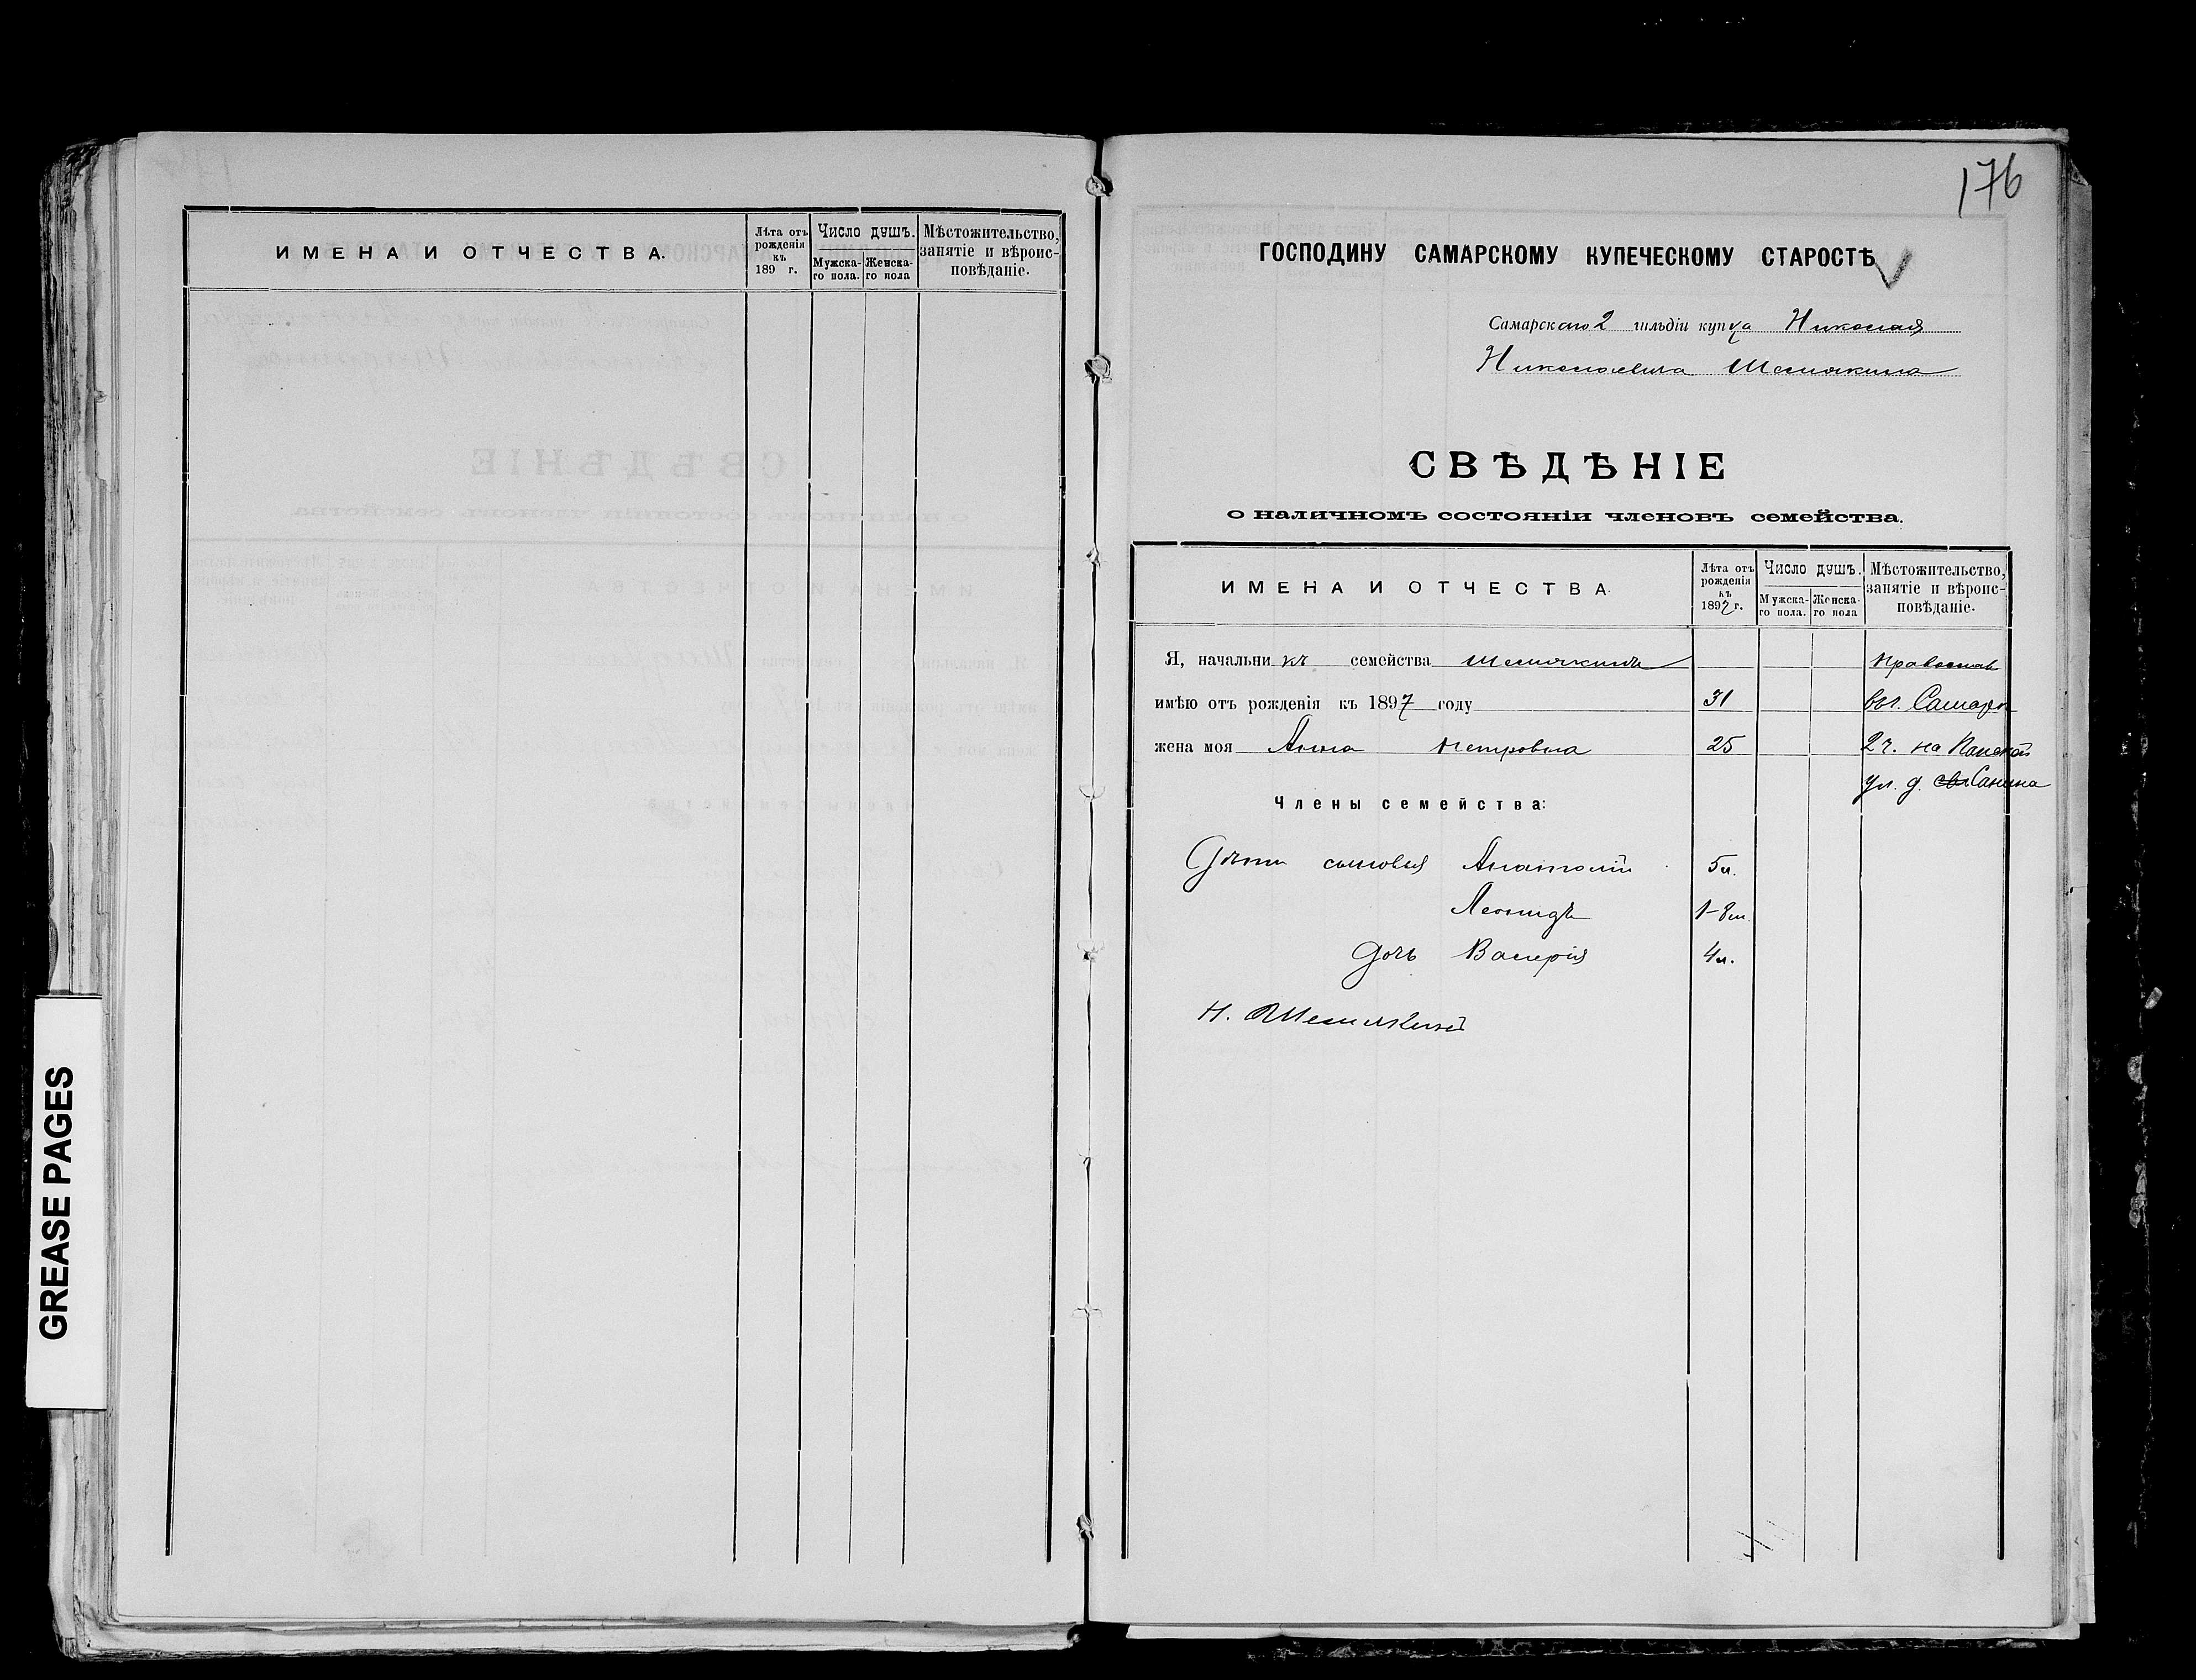 ИМЕНА И ОТЧЕСТВА.
Лѣта отъ рожденія къ 189 г.
Число душъ.
Мужска-го пола.
Женска-го пола
Мѣстожительство, занятіе и вѣроис-повѣданіе.
GREASE PAGES
176
ГОСПОДИНУ САМАРСКОМУ КУПЕЧЕСКОМУ СТАРОСТѢ
Самарскаго 2 гильдіи купца Николая
Николаевича Шемякина
СВѢДѢНІЕ
о наличномъ состояніи членовъ семейства.
ИМЕНА И ОТЧЕСТВА.
Лѣта отъ рожденія къ 1897 г.
Число душъ.
Мужска-го пола.
Женска-го пола
Мѣстожительство, занятіе и вѣроис-повѣданіе.
Я, начальникъ семейства Шемякинъ Православ
имѣю отъ рожденія къ 1897 году 31 въ г. Самарѣ
жена моя Анна Петровна 25 2 ч. на Панской
ул. д. Санина
Члены семейства:
Дѣти сыновья Анатолій 5 л.
Леонидъ 1-8 м.
дочь Валерія 4 л.
Н. Шемякинъ